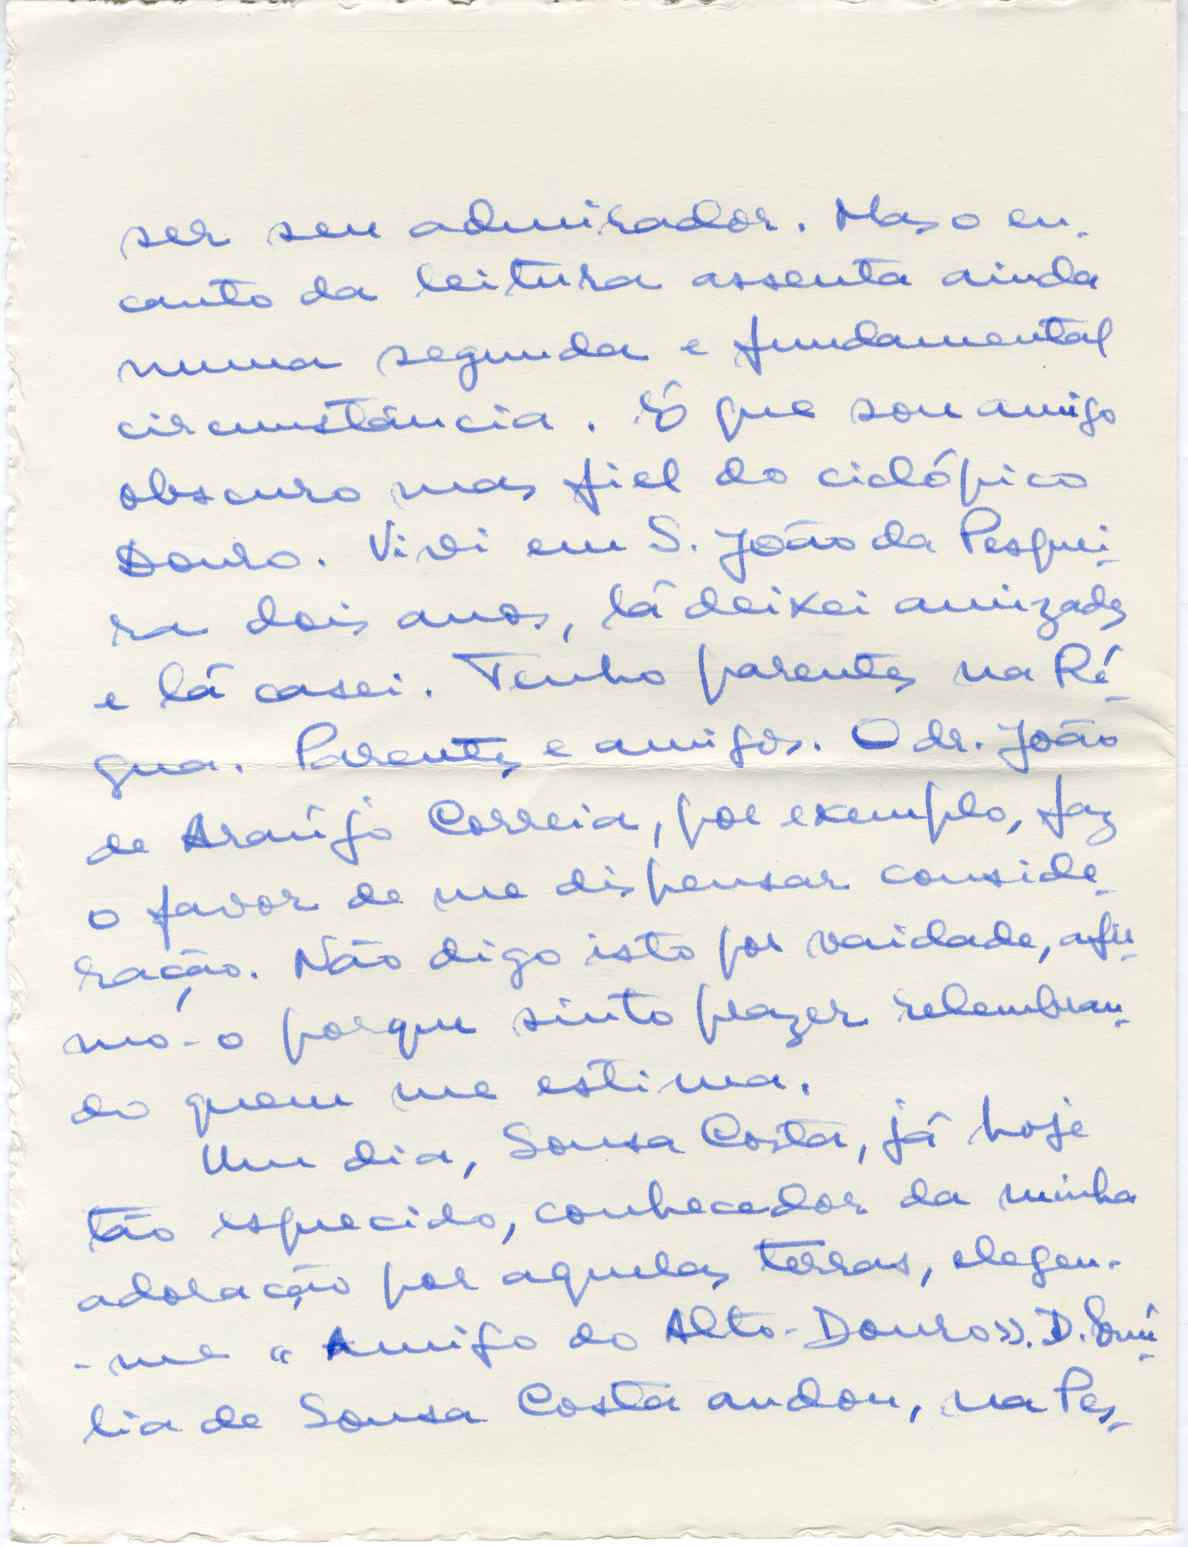 ser seu admirador. Mas o en-
canto da leitura assenta ainda
numa segunda e fundamental
circunstância. É que sou amigo
obscuro mas fiel do ciclópico
Douro. Vivi em S. João da Pesquei-
ra dois anos, lá deixei amizades
e lá casei. Tenho parentes na Ré-
gua. Parentes e amigos. O dr. João
de Araújo Correia, por exemplo, faz
o favor de me dispensar conside-
ração. Não digo isto por vaidade, afir-
mo-o porque sinto prazer relembran-
do quem me estima.
Um dia, Sousa Costa, já hoje
tão esquecido, conhecedor da minha
adoração por aquelas terras, elegeu-
-me «Amigo do Alto-Douro». D. Emí-
lia de Sousa Costa andou, na Pes-